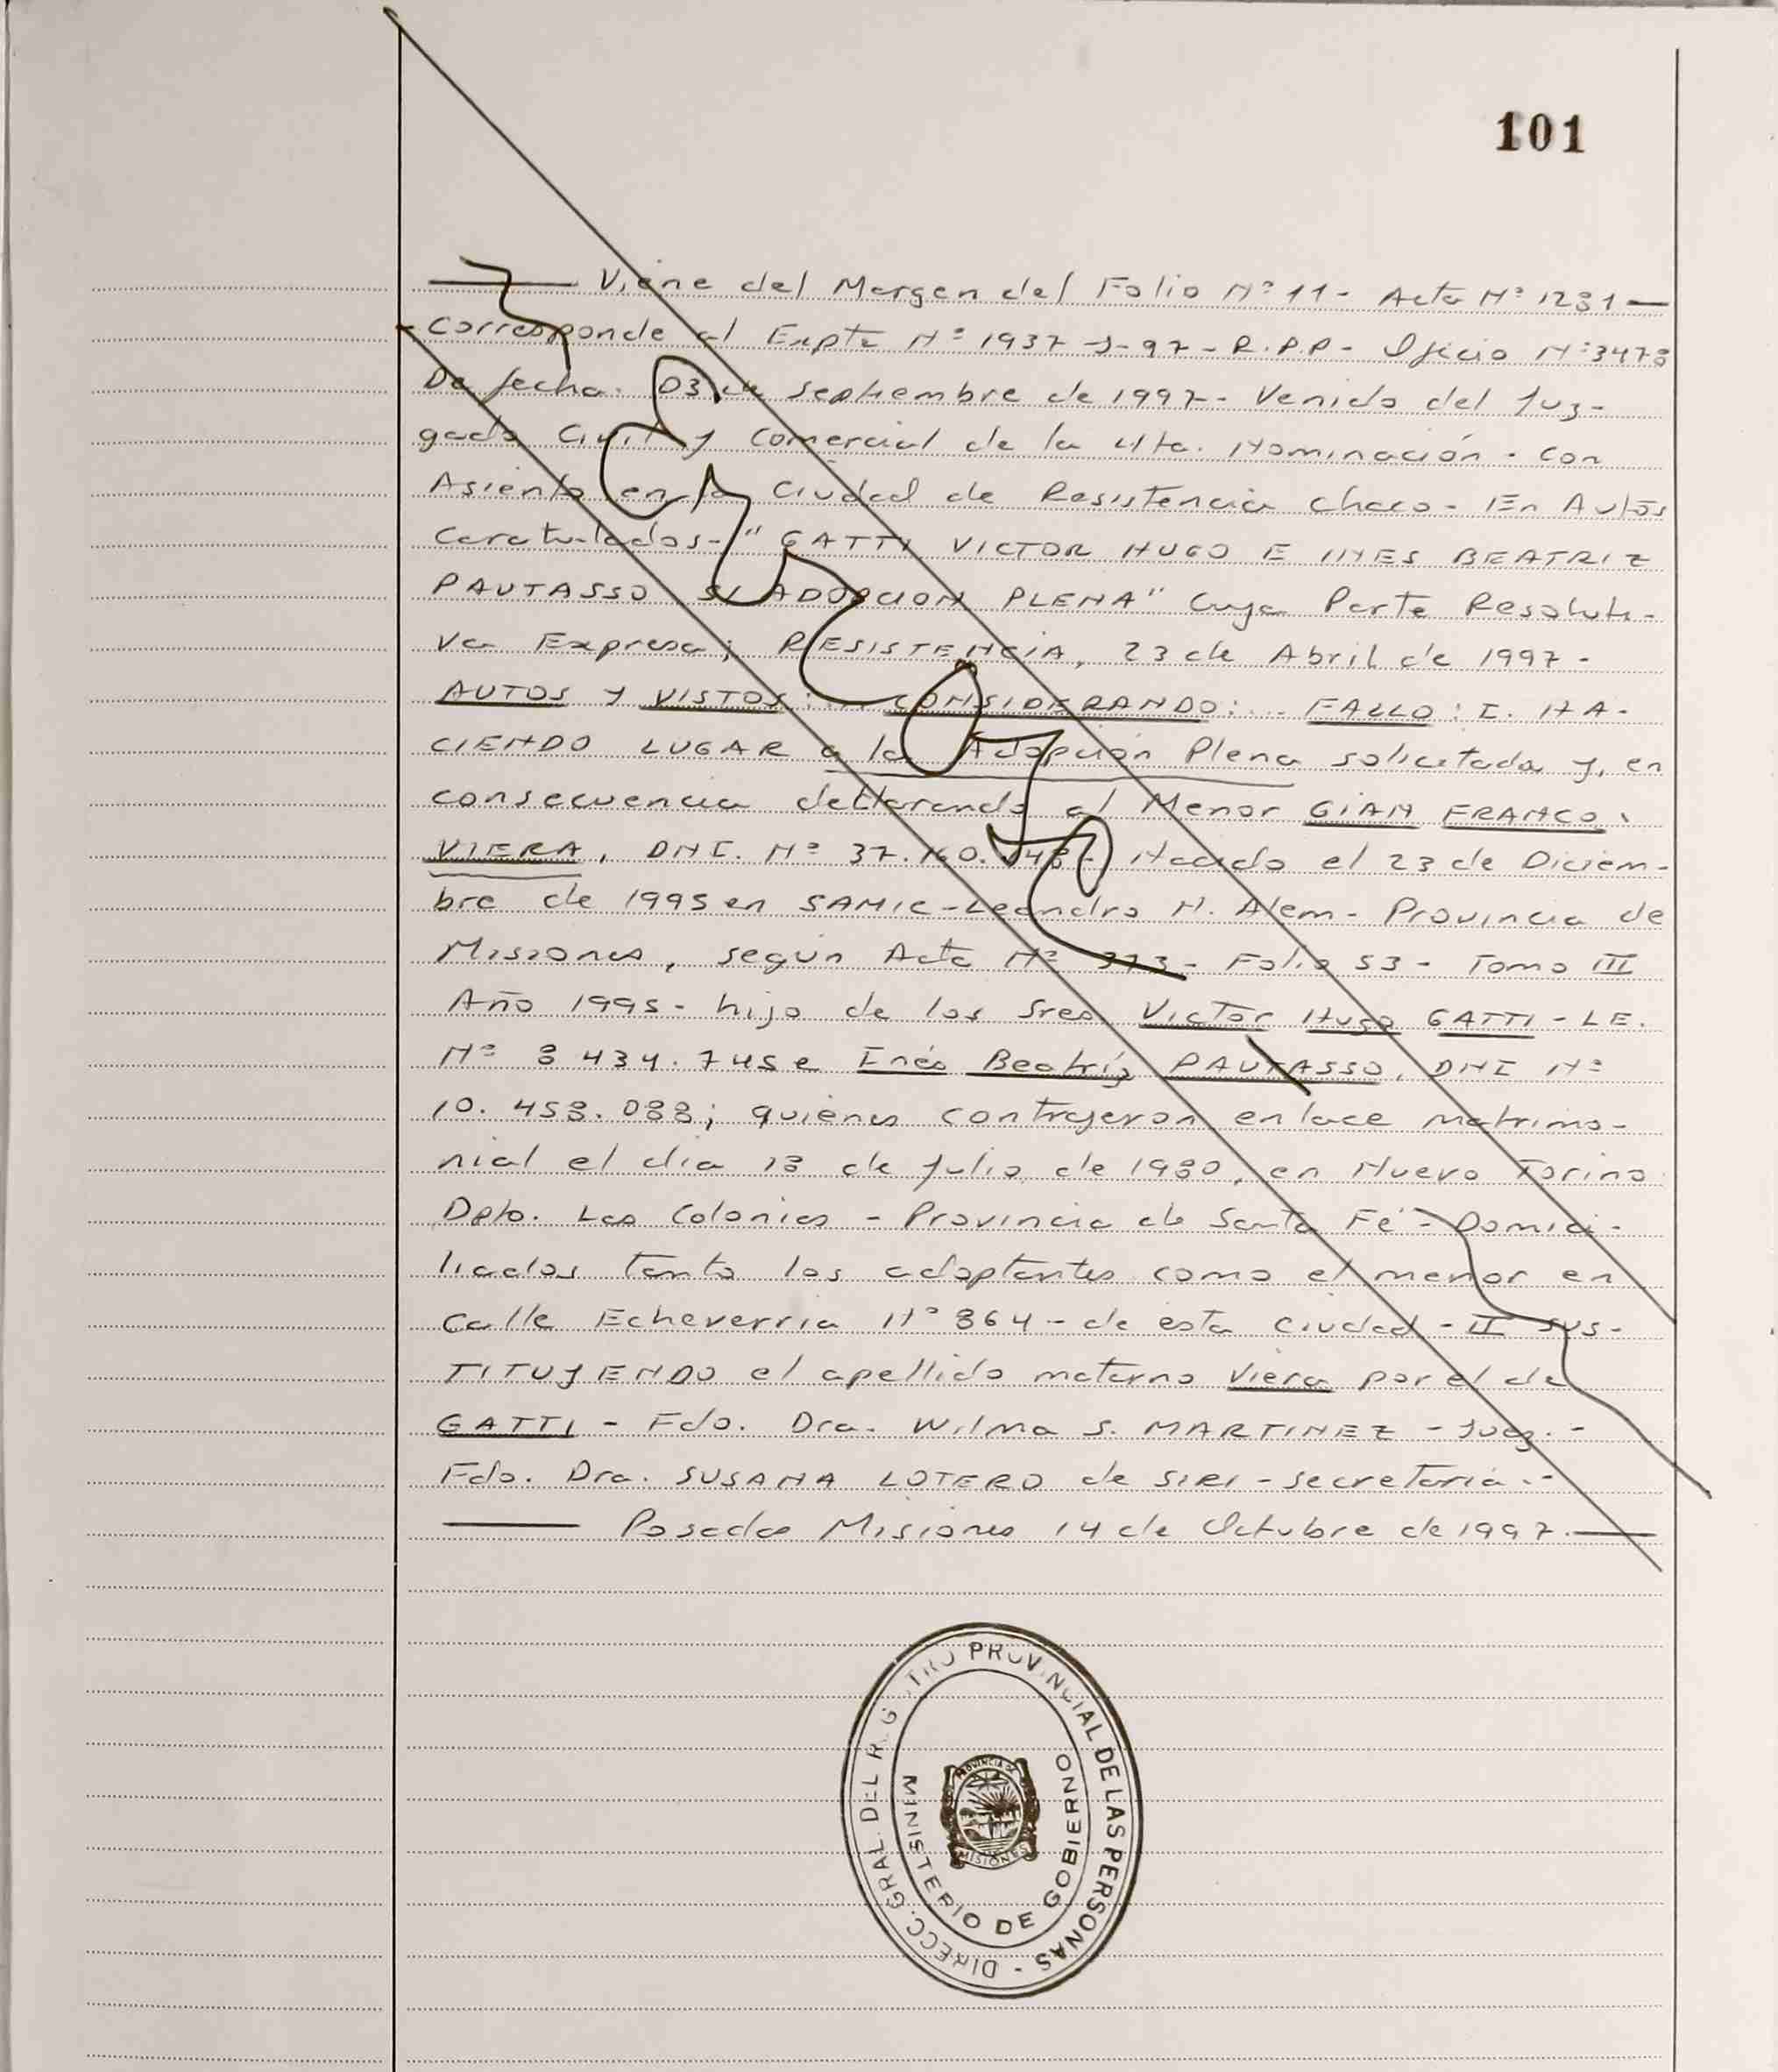 101
Viene del Margen del Folio Nº 11 - Acta Nº 1281
Corresponde al Expte Nº 1937-J-97 - R.P.P - Oficio Nº 3478
De fecha: 03 de septiembre de 1997 - Venido del Juz-
gado Civil y Comercial de la 4ta. Nominación - con
Asiento en la Ciudad de Resistencia Chaco - En Autos
Caratulados - "GATTI VICTOR HUGO E INES BEATRIZ
PAUTASSO S/ ADOPCION PLENA" Cuya Parte Resoluti-
va Expresa; RESISTENCIA, 23 de Abril de 1997 -
AUTOS Y VISTOS: ... CONSIDERANDO: ... FALLO: I. HA-
CIENDO LUGAR a la Adopción Plena solicitada y, en
consecuencia declarando al Menor GIAN FRANCO
VIERA, DNI. Nº 37. Nacido el 23 de Diciem-
bre de 1995 en SAMIC - Leandro N. Alem - Provincia de
Misiones, según Acta Nº 373 - Folio 53 - Tomo III
Año 1995 - hijo de los Sres Victor Hugo GATTI - LE.
Nº 8 434.745 e Inés Beatríz PAUTASSO, DNI Nº
10.458.088; quienes contrajeron enlace matrimo-
nial el dia 18 de Julio de 1980, en Nuevo Torino
Dpto. Las Colonias - Provincia de Santa Fé - Domici-
liados tanto los adoptantes como el menor en
Calle Echeverria Nº 864 - de esta Ciudad - II SUS-
TITUYENDO el apellido materno Viera por el de
GATTI - Fdo. Dra. Wilma S. MARTINEZ - Juez. -
Fdo. Dra. SUSANA LOTERO de SIRI - Secretaria. -
Posadas Misiones 14 de Octubre de 1997.
DIRECC. GRAL. DEL REGISTRO PROVINCIAL DE LAS PERSONAS -
MINISTERIO DE GOBIERNO
PROVINCIA DE
MISIONES